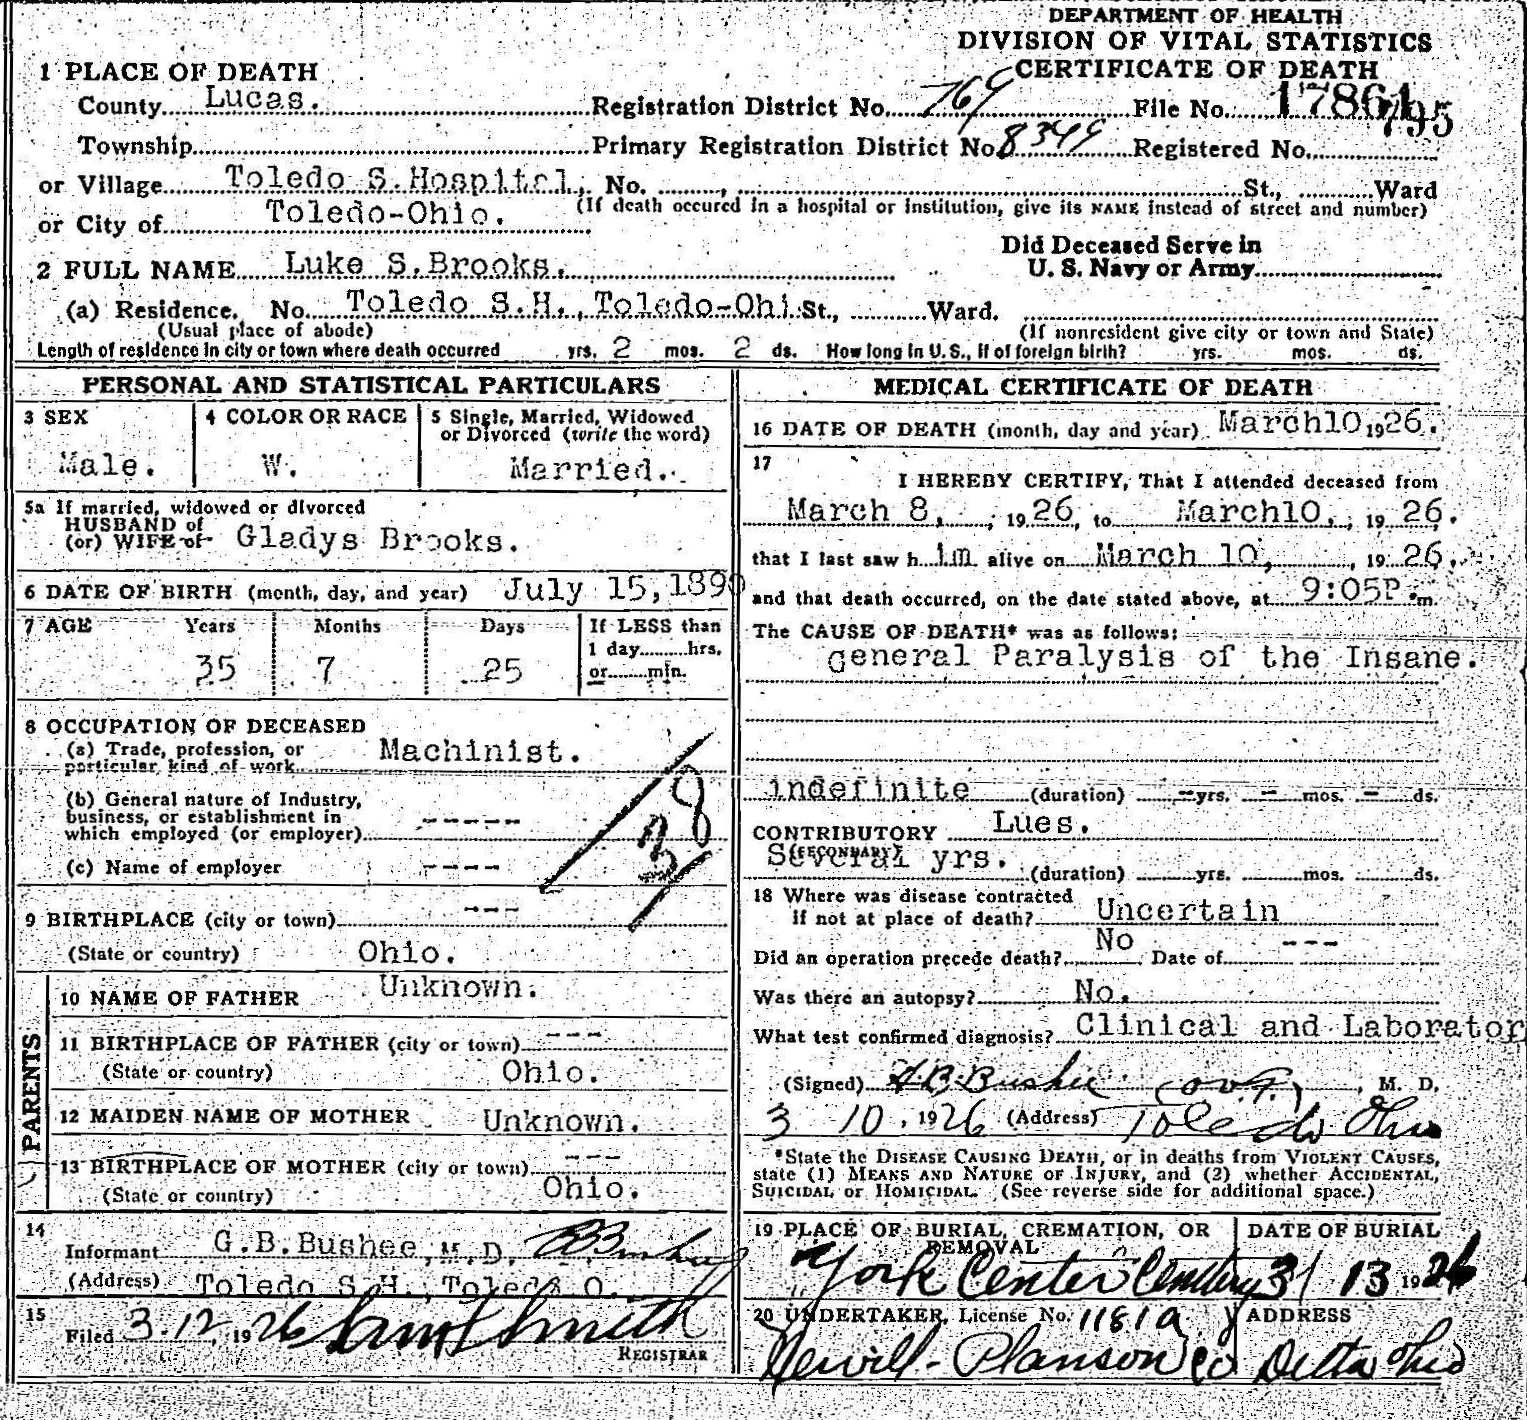 DEPARTMENT OF HEALTH
DIVISION OF VITAL STATISTICS
CERTIFICATE OF DEATH
1 PLACE OF DEATH
County Lucas. Registration District No. 769 File No. 17861
795
Township Primary Registration District No. 8349 Registered No.
or Village Toledo S.Hospital, No. , St., Ward
or City of Toledo-Ohio. (If death occured in a hospital or institution, give its NAME instead of street and number)
2 FULL NAME Luke S.Brooks. Did Deceased Serve in
U. S. Navy or Army
(a) Residence. No. Toledo S.H., Toledo-Ohi St., Ward.
(Usual place of abode) (If nonresident give city or town and State)
Length of residence in city or town where death occurred yrs. 2 mos. 2 ds. How long in U. S., if of foreign birth? yrs. mos. ds.
PERSONAL AND STATISTICAL PARTICULARS
3 SEX
Male.
4 COLOR OR RACE
W.
5 Single, Married, Widowed
or Divorced (write the word)
Married.
5a If married, widowed or divorced
HUSBAND of
(or) WIFE of Gladys Brooks.
6 DATE OF BIRTH (month, day, and year) July 15,1890
7 AGE Years Months Days If LESS than
1 day hrs.
35 7 25 or min.
8 OCCUPATION OF DECEASED
(a) Trade, profession, or
particular kind of work Machinist.
(b) General nature of Industry,
business, or establishment in
which employed (or employer) -----
(c) Name of employer ----
38
9 BIRTHPLACE (city or town) ---
(State or country) Ohio.
PARENTS
10 NAME OF FATHER Unknown.
11 BIRTHPLACE OF FATHER (city or town) ---
(State or country) Ohio.
12 MAIDEN NAME OF MOTHER Unknown.
13 BIRTHPLACE OF MOTHER (city or town) ---
(State or country) Ohio.
14
Informant G.B.Bushee,M.D.
(Address) Toledo S.H., Toledo O.
15
Filed 3-12, 1926 Smith
REGISTRAR
MEDICAL CERTIFICATE OF DEATH
16 DATE OF DEATH (month, day and year) March10,1926.
17
I HEREBY CERTIFY, That I attended deceased from
March 8, , 1926, to March10, , 1926.
that I last saw h im alive on March 10, , 1926,
and that death occurred, on the date stated above, at 9:05P.m.
The CAUSE OF DEATH* was as follows:
General Paralysis of the Insane.
indefinite (duration) -yrs. - mos. - ds.
CONTRIBUTORY Lues.
(SECONDARY)
Several yrs. (duration) yrs. mos. ds.
18 Where was disease contracted
if not at place of death? Uncertain
Did an operation precede death? No Date of ---
Was there an autopsy? No.
What test confirmed diagnosis? Clinical and Laborator
(Signed) Bushee , M. D.
3 10, 1926 (Address) Toledo Ohio
*State the DISEASE CAUSING DEATH, or in deaths from VIOLENT CAUSES,
state (1) MEANS AND NATURE OF INJURY, and (2) whether ACCIDENTAL,
SUICIDAL or HOMICIDAL. (See reverse side for additional space.)
19 PLACE OF BURIAL, CREMATION, OR
REMOVAL
York Center Cemetery
DATE OF BURIAL
3/ 13 1926
20 UNDERTAKER, License No. 1181a
ADDRESS
Planson Co Delta Ohio